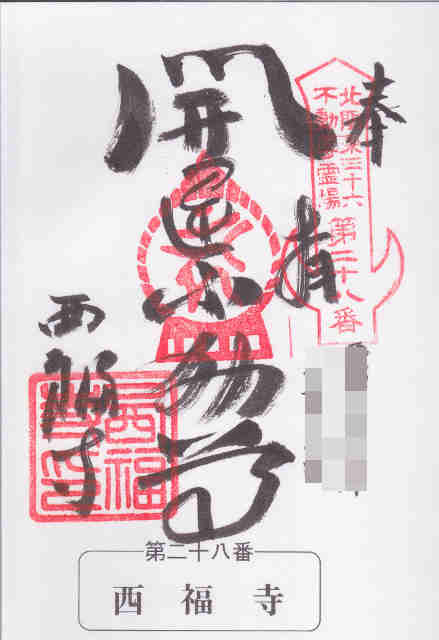 奉拝
北関東三十六
不動尊霊場
第二十八番
開運不動尊
西福寺
第二十八番
西福寺